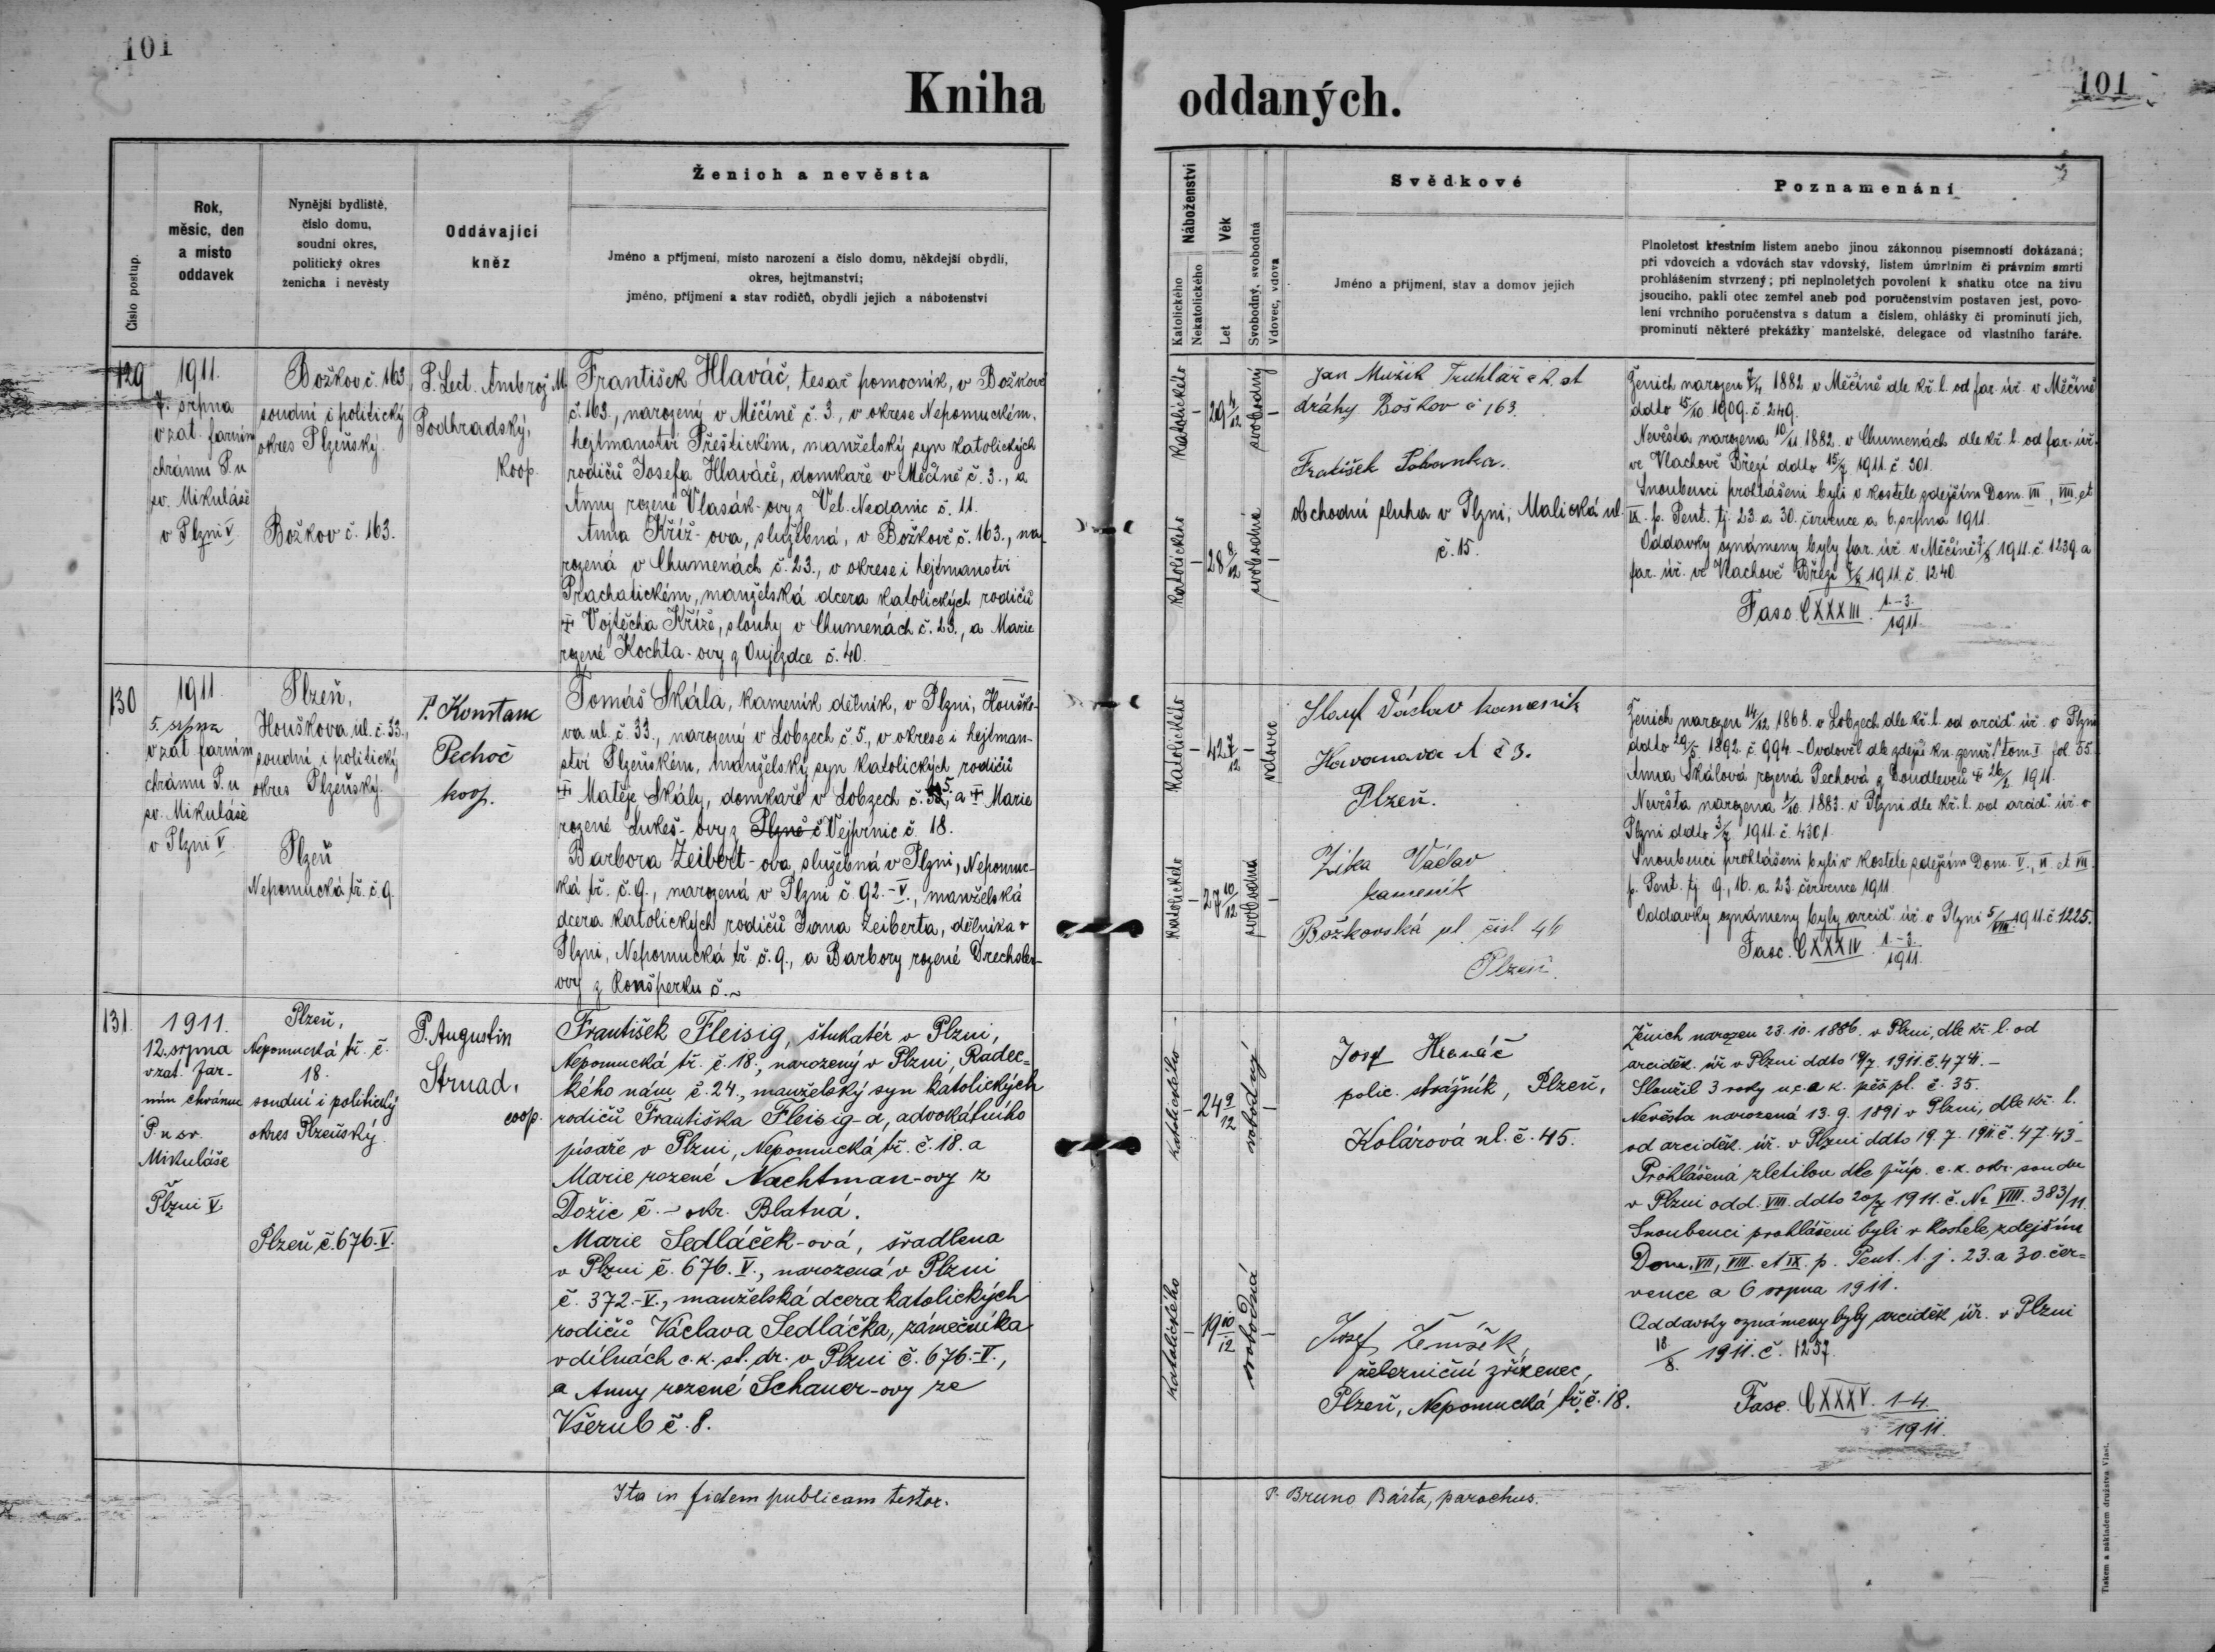 101
Kniha oddaných.
101
Číslo postup.
Rok,
měsíc, den
a místo
oddavek
Nynější bydliště,
číslo domu,
soudní okres,
politický okres
ženicha i nevěsty
Oddávající
kněz
Ženich a nevěsta
Jméno a příjmení, místo narození a číslo domu, někdejší obydlí,
okres, hejtmanství;
jméno, příjmení a stav rodičů, obydlí jejich a náboženství
Náboženství
Katolického
Nekatolického
Věk
Let
Svobodný, svobodná
Vdovec, vdova
Svědkové
Jméno a příjmení, stav a domov jejich
Poznamenání
Plnoletost křestním listem anebo jinou zákonnou písemností dokázaná;
při vdovcích a vdovách stav vdovský, listem úmrtním či právním smrti
prohlášením stvrzený; při neplnoletých povolení k sňatku otce na živu
jsoucího, pakli otec zemřel aneb pod poručenstvím postaven jest, povo-
lení vrchního poručenstva s datum a číslem, ohlášky či prominutí jich,
prominutí některé překážky manželské, delegace od vlastního faráře.
129
1911.
7. srpna
v zat. farním
chrámu P. u
sv. Mikuláše
v Plzni V
Božkov č. 163,
soudní i politický
okres Plzeňský.
Božkov č. 163.
P. Lect. Ambrož M.
Podhradský,
koop.
František Hlaváč, tesař pomocník, v Božkově
č. 163., narozený v Měčíně č. 3., v okrese Nepomuckém,
hejtmanství Přeštickém, manželský syn katolických
rodičů Josefa Hlaváče, domkaře v Měčíně č. 3., a
Anny rozené Vlasák-ovy z Vel. Nedanic č. 11.
Anna Kříž-ova, služebná, v Božkově č. 163., na-
rozená v Chumenách č. 23., v okrese i hejtmanství
Prachatickém, manželská dcera katolických rodičů
‡ Vojtěcha Kříže, slouhy v Chumenách č. 23., a Marie
rozené Kochta-ovy z Oujezdce č. 40.
katolického
– 29 4/12
svobodný –
katolického
– 28 8/12
svobodná –
Jan Mužik Truhlář c. k. st
dráhy Boškov č 163.
František
obchodní sluha v Plzni, Malická ul.
č. 15.
Ženich narozen 7/4 1882 v Měčíně dle kř. l. od far. úř. v Měčíně
ddto 15/10 1909. č. 249.
Nevěsta narozena 10/11 1882. v Chumenách dle kř. l. od far. úř.
ve Vlachově Březí ddto 15/7 1911. č. 301.
Snoubenci prohlášeni byli v kostele zdejším Dom. VII, VIII, et
IX. p. Pent. tj. 23. a 30. července a 6. srpna 1911.
Oddavky oznámeny byly far. úř. v Měčíně 7/8 1911. č. 1239. a
far. úř. ve Vlachově Březí 7/8 1911. č. 1240.
Fasc. CXXXIII. 1.-3./1911.
130
1911.
5. srpna
v zat. farním
chrámu P. u
sv. Mikuláše
v Plzni V
Plzeň,
Houškova ul. č. 33.,
soudní i politický
okres Plzeňský.
Plzeň
Nepomucká tř. č. 9.
P. Konstanc
Pechoč
koop.
Tomáš Skála, kameník dělník, v Plzni, Houško-
va ul. č. 33., narozený v Lobzech č. 5., v okrese i hejtman-
ství Plzeňském, manželský syn katolických rodičů
‡ Matěje Skály, domkaře v Lobzech č. 5., a ‡ Marie
rozené Lukeš-ovy z Plzně č Vejprnic č. 18.
Barbora Zeibert-ova, služebná v Plzni, Nepomuc-
ká tř. č. 9., narozená v Plzni č. 92.-V., manželská
dcera katolických rodičů Jana Zeiberta, dělníka v
Plzni, Nepomucká tř. č. 9., a Barbory rozené Drechsler-
ovy z Ronšperku č. ~
katolického
– 42 7/12 –
vdovec
katolického
– 27 10/12
svobodná –
Václav kameník
č 3.
Plzeň.
Zika Václav
kameník
Božkovská ul. čísl 46
Plzeň.
Ženich narozen 14/12 1868. v Lobzech dle kř. l. od arciď. úř. v Plzni
ddto 29/5 1892. č. 994. – Ovdověl dle zdejší kn. zemř. tom. I fol. 55
Anna Skálová rozená Pechová z Doudlevců ‡ 26/2 1911.
Nevěsta narozena 1/10. 1883. v Plzni dle kř. l. od arciď. úř. v
Plzni ddto 3/7 1911. č. 4301.
Snoubenci prohlášeni byli v kostele zdejším Dom. V., VI. et VII.
p. Pent. tj. 9., 16. a 23. července 1911.
Oddavky oznámeny byly arciď. úř. v Plzni 5/VIII. 1911. č. 1225.
Fasc. CXXXIV. 1.-3./1911.
131.
1911.
12. srpna
v zat. far-
ním chrámu
P. u sv.
Mikuláše
v
Plzni V.
Plzeň,
Nepomucká tř. č.
18.
soudní i politický
okres Plzeňský.
Plzeň č. 676.-V.
P. Augustin
Strnad,
coop.
František Fleisig, štukatér v Plzni,
Nepomucká tř. č. 18., narozený v Plzni, Radec=
kého nám. č. 24., manželský syn katolických
rodičů Františka Fleisig-a, advokátního
písaře v Plzni, Nepomucká tř. č. 18. a
Marie rozené Nachtman-ovy z
Dožic č. – okr. Blatná.
Marie Sedláček-ová, švadlena
v Plzni č. 676. V., narozená v Plzni
č. 372.-V., manželská dcera katolických
rodičů Václava Sedláčka, zámečníka
v dílnách c. k. st. dr. v Plzni č. 676.-V.,
a Anny rozené Schauer-ovy ze
Všerub č. 8.
katolického
– 24 9/12
svobodný –
katolického
– 19 10/12
svobodná –
Josef
polic. strážník, Plzeň,
Kolárová ul. č. 45.
Josef
železniční zřízenec,
Plzeň, Nepomucká tř. č. 18.
Ženich narozen 23. 10. 1886. v Plzni, dle kř. l. od
arciděk. úř. v Plzni ddto 19/7. 1911. č. 4741. –
Sloužil 3 roky u c. a k. pěš. pl. č. 35.
Nevěsta narozená 13. 9. 1891 v Plzni, dle kř. l.
od arciděk. úř. v Plzni ddto 19. 7. 1911. č. 4743 –
Prohlášená zletilou dle příp. c. k. okr. soudu
v Plzni odd. VIII. ddto 20/7 1911. č. Nc VIII. 383/11.
Snoubenci prohlášeni byli v kostele zdejším
Dom. VII, VIII. et IX. p. Pent. t. j. 23. a 30. čer=
vence a 6 srpna 1911.
Oddavky oznámeny byly arciděk. úř. v Plzni
18/8. 1911. č. 1237.
Fasc. CXXXV. 1-4./1911.
Ita in fidem publicam testor. P. Bruno Bárta, parochus.
Tiskem a nákladem družstva Vlast.